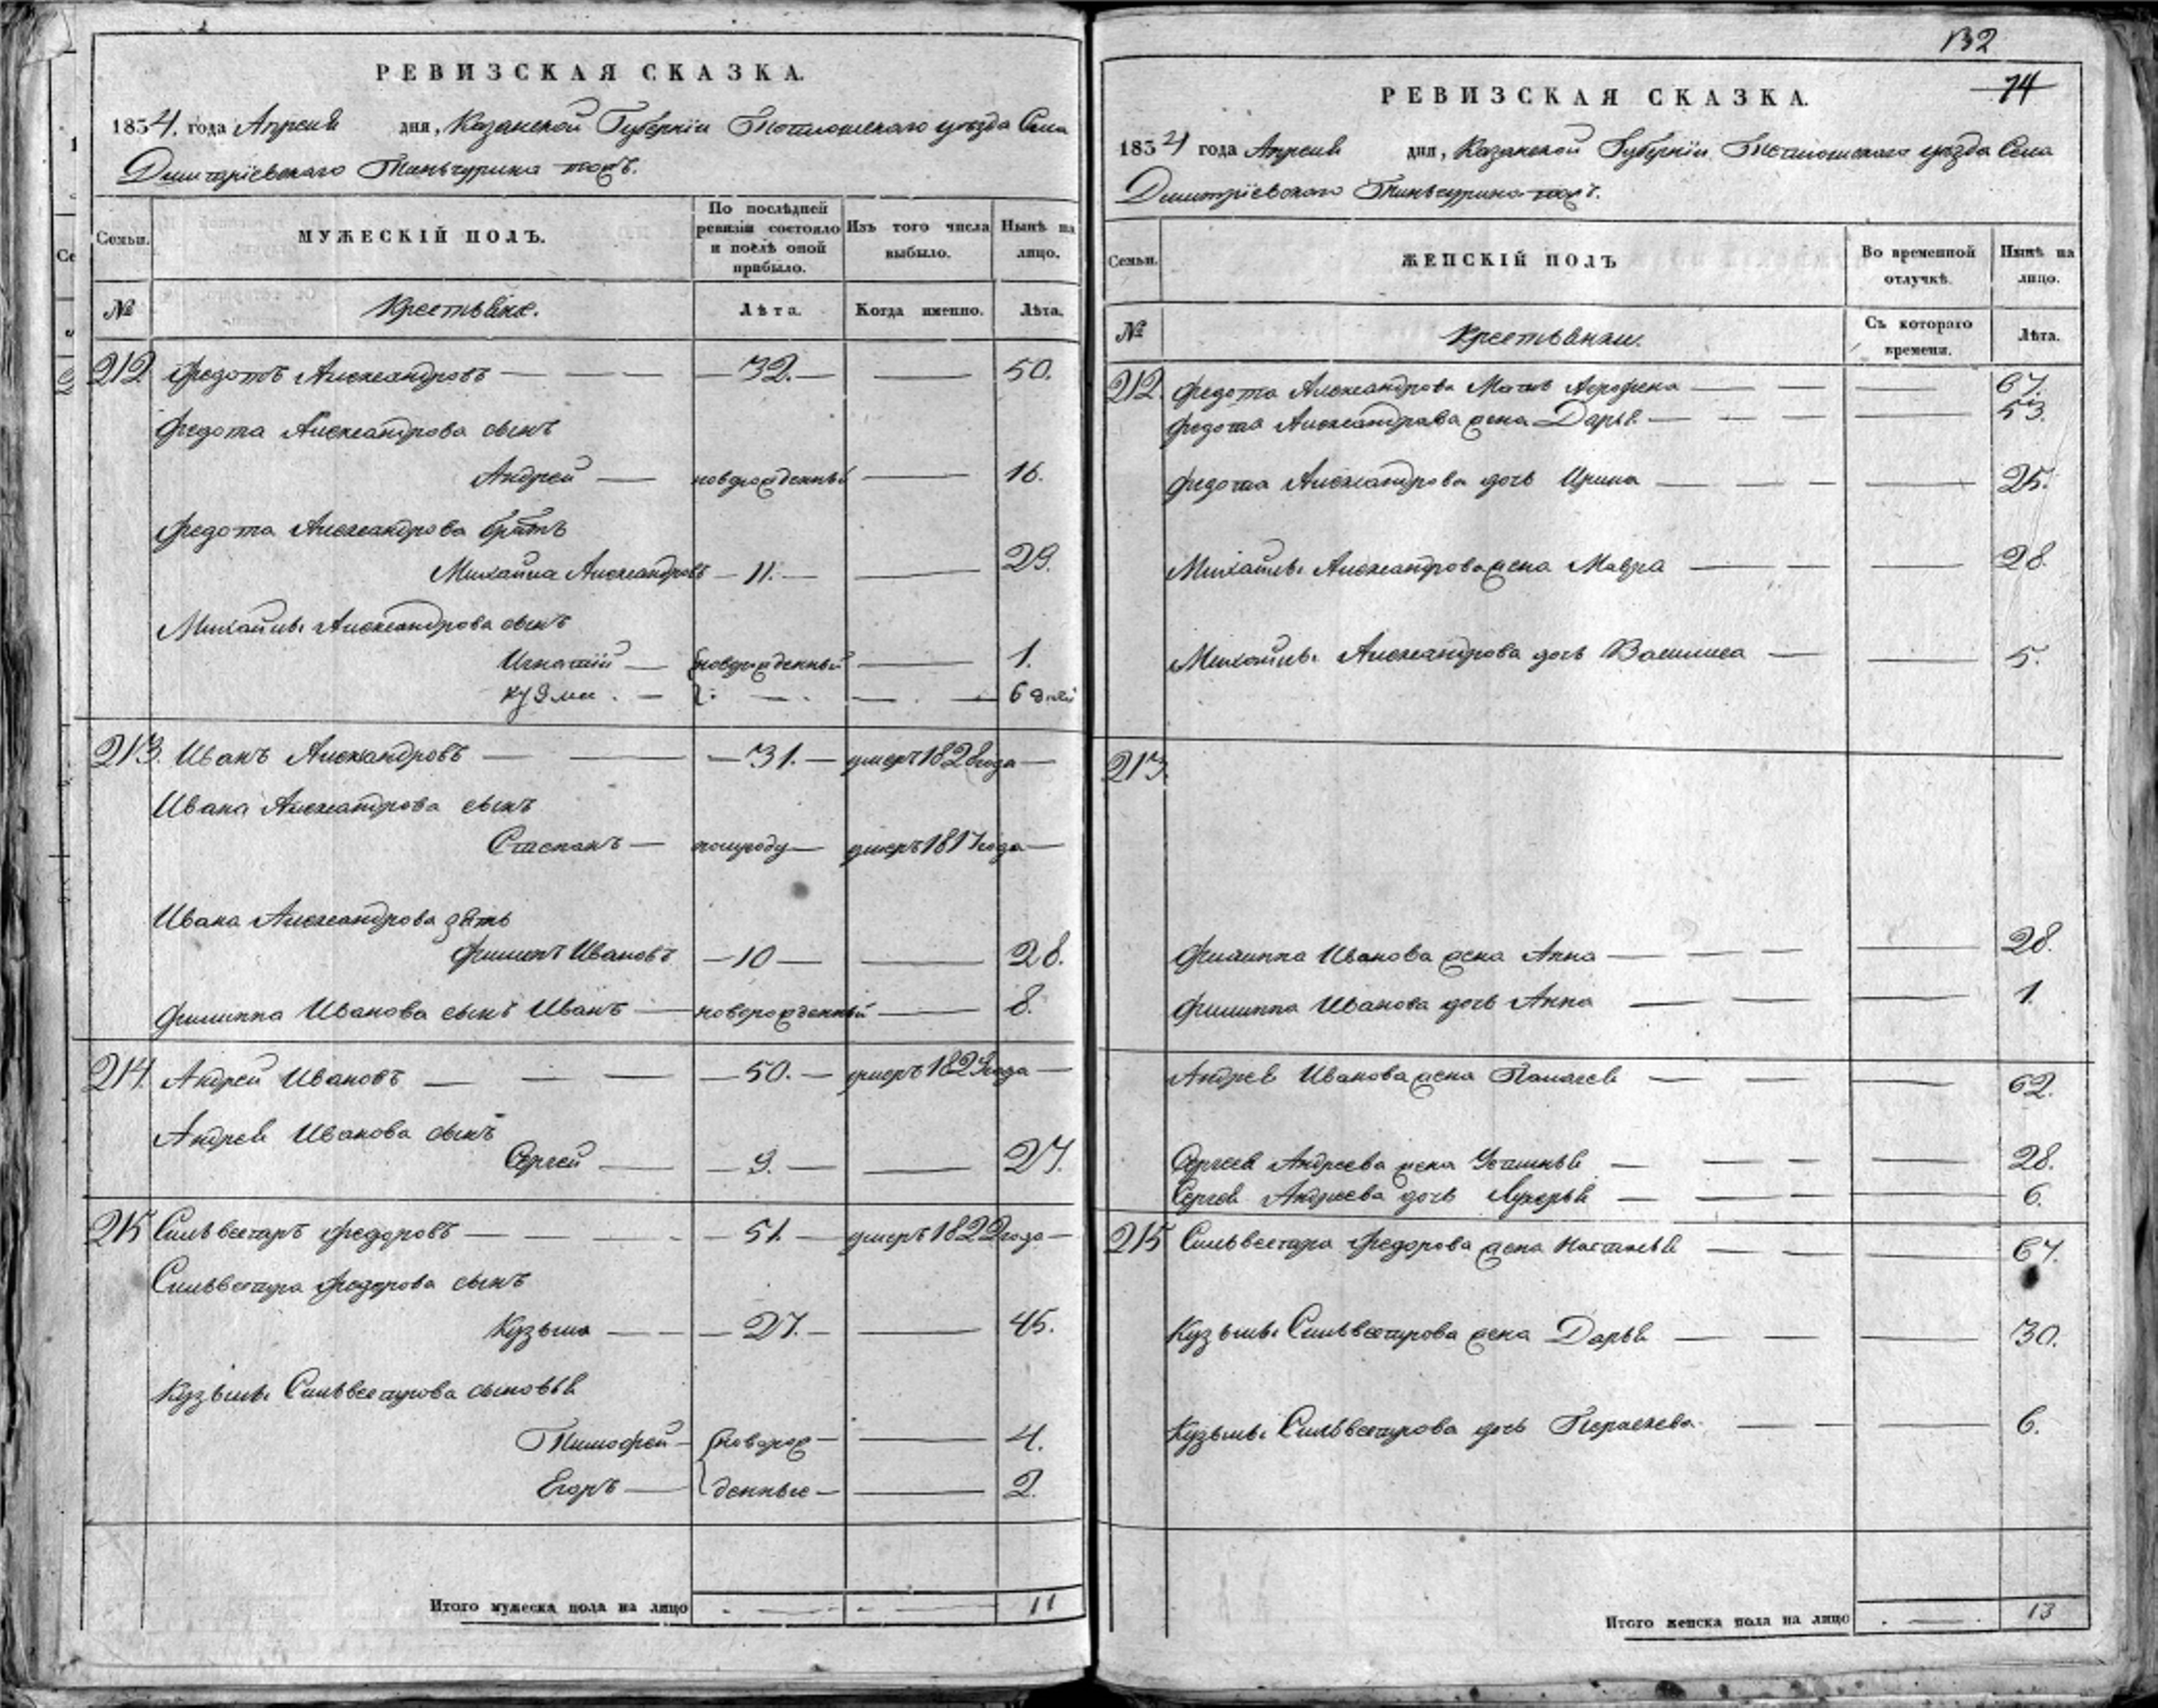 РЕВИЗСКАЯ СКАЗКА.
1834. года Апреля дня, Казанской Губернiи уѣзда Села
Дмитрiевскаго тожъ.
Семьи.
МУЖЕСКІЙ ПОЛЪ.
По послѣдней ревизіи состояло и послѣ оной прибыло.
Изъ того числа выбыло.
Нынѣ на лицо.
№
Крестьяне.
Лѣта.
Когда именно.
Лѣта.
212 Федотъ Александровъ — 32. — 50.
Федота Александрова сынъ
Андрей — новорожденный — 16.
Федота Александрова братъ
Михайла Александровъ — 11. — 29.
Михайлы Александрова сынъ
Игнатій — новорожденный — 1.
Кузма. — 6 дней
213. Иванъ Александровъ — 31. — умеръ 1828 года —
Ивана Александрова сынъ
Степанъ — полугоду — умеръ 1817 года —
Ивана Александрова зять
Филипъ Ивановъ — 10 — 28.
Филиппа Иванова сынъ Иванъ — новорожденный — 8.
214. Андрей Ивановъ — 50. — умеръ 1823 года —
Андрея Иванова сынъ
Сергей — 9. — 27.
215 Сильвестаръ Федоровъ — 51. — умеръ 1822 года —
Сильвестара Федорова сынъ
Кузьма — 27. — 45.
Кузьмы Сильвестарова сыновья
Тимофей — новорож — 4.
Егоръ — денные — 2.
Итого мужеска пола на лицо 11
132
74
РЕВИЗСКАЯ СКАЗКА.
1834 года Апреля дня, Казанской Губернiи уѣзда Села
Дмитрiевскаго тожъ.
Семьи.
ЖЕНСКІЙ ПОЛЪ
Во временной отлучкѣ.
Нынѣ на лицо.
№
Крестьянки.
Съ котораго времени.
Лѣта.
212. Федота Александрова Мать Афрофена — 67.
Федота Александрова жена Дарья — 53.
Федота Александрова дочь Ирина — 25.
Михайлы Александрова жена Мавра — 28.
Михайлы Александрова дочь Василиса — 5.
213.
Филиппа Иванова жена Анна — 28.
Филиппа Иванова дочь Анна — 1.
Андрея Иванова жена — 62.
Сергея Андреева жена Устинья — 28.
Сергея Андреева дочь Лукерья — 6.
215 Сильвестара Федорова жена Настасья — 67.
Кузьмы Сильвестарова жена Дарья — 30.
Кузьмы Сильвестарова дочь Пераскева — 6.
Итого женска пола на лицо 13